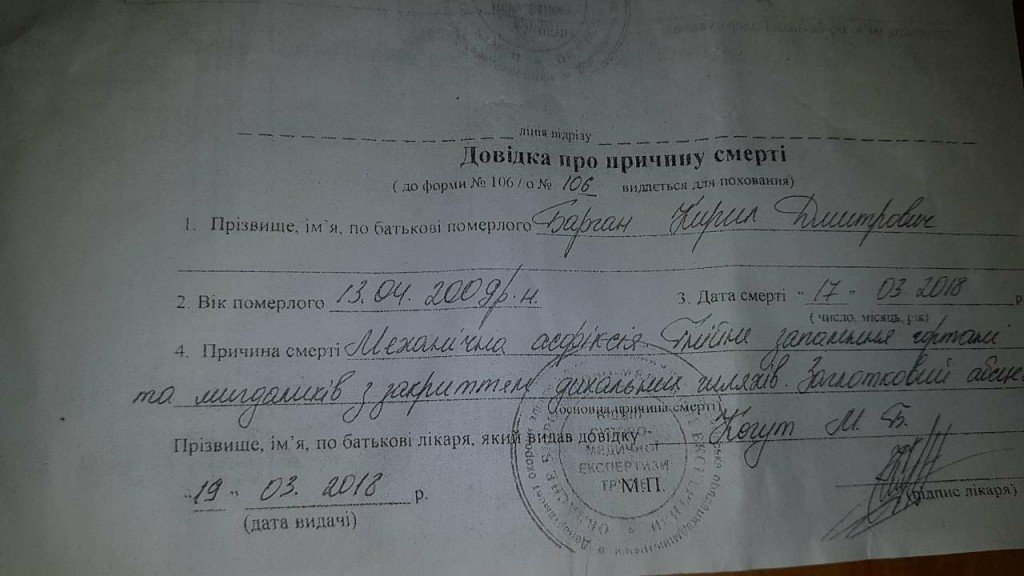 лінія відрізу
Довідка про причину смерті
( до форми № 106 / о № 106 видається для поховання)
1. Прізвище, ім’я, по батькові померлого Барган Кирил Дмитрович
2. Вік померлого 13.04. 2009р.н. 3. Дата смерті " 17 - 03 2018 р
( число, місяць, рік)
4. Причина смерті Механічна асфіксія Гнійне запалення гортані
та мигдаликів з закриттям дихальних шляхів. Заглотковий абсце
(основна причина смерті)
Прізвище, ім’я, по батькові лікаря, який видав довідку Когут М. Б.
"19" 03. 2018 р. М.П. (підпис лікаря)
(дата видачі)
СУДОВО-
МЕДИЧНОЇ
ЕКСПЕРТИЗИ